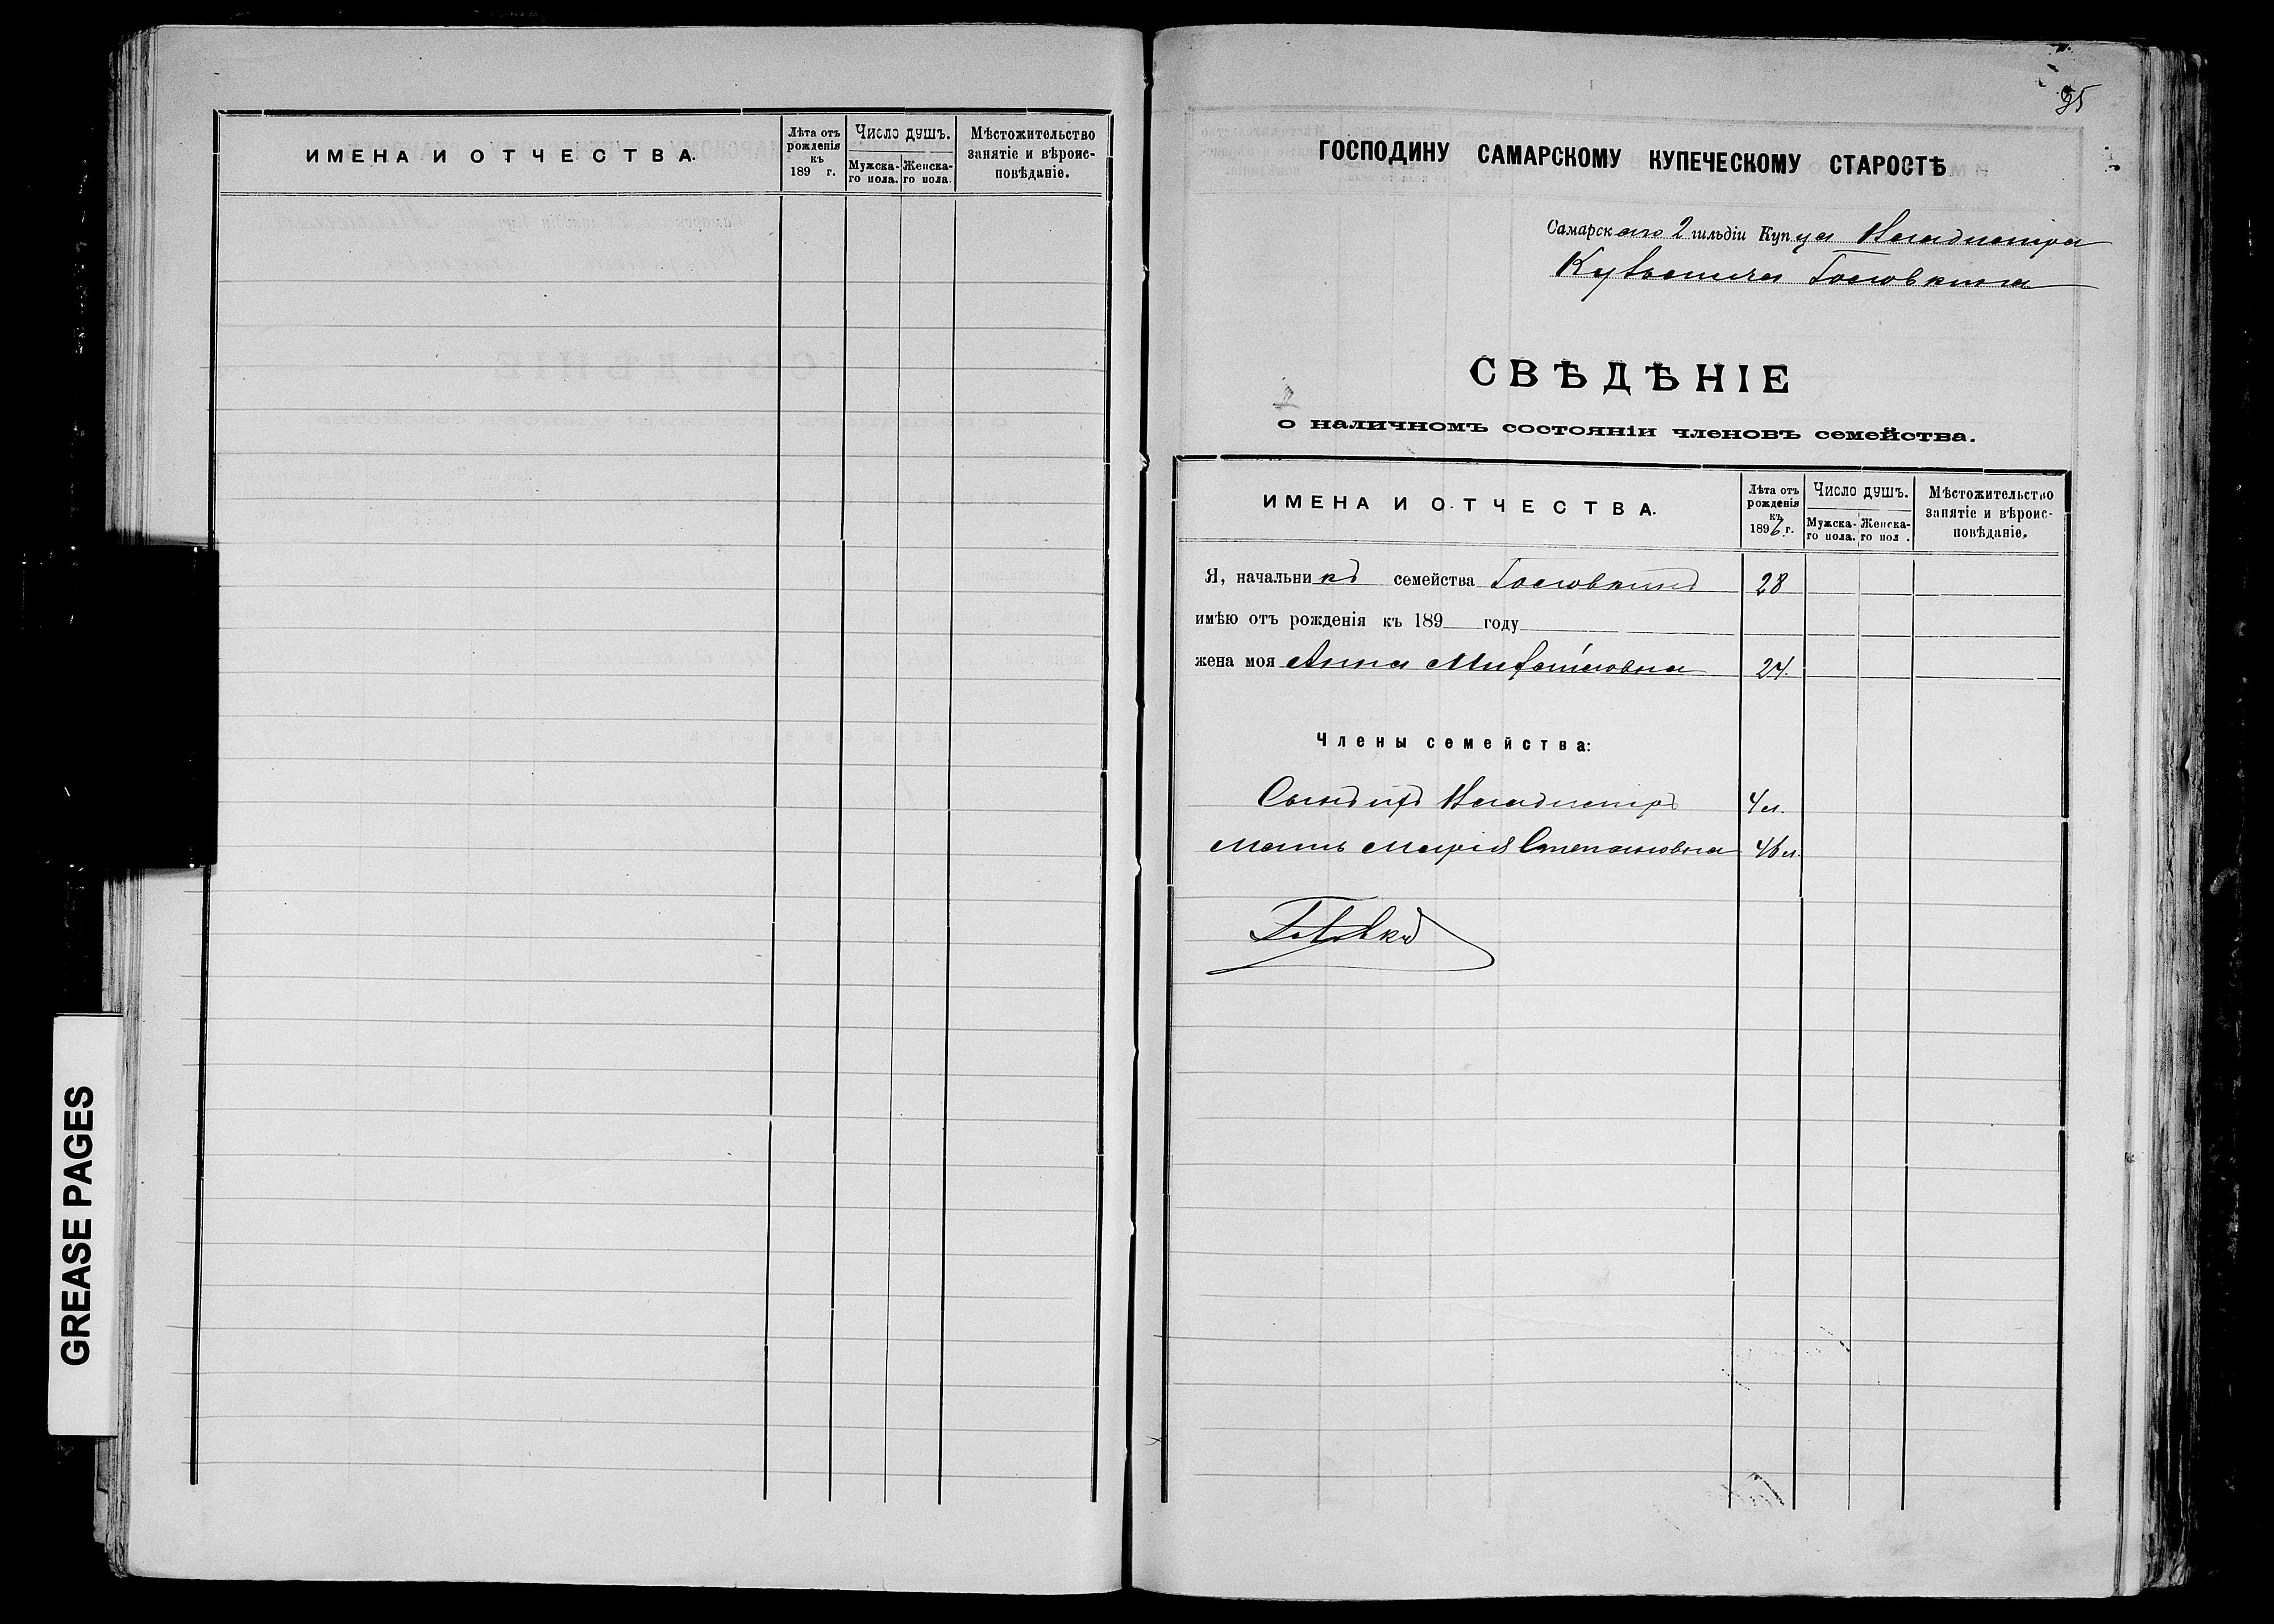 ИМЕНА И ОТЧЕСТВА.
Лѣта отъ рожденія къ 189 г.
Число душъ.
Мужска-го пола.
Женска-го пола.
Мѣстожительство занятіе и вѣроис-повѣданіе.
GREASE PAGES
95
ГОСПОДИНУ САМАРСКОМУ КУПЕЧЕСКОМУ СТАРОСТѢ
Самарскаго 2 гильдіи Купца Александра
Головкина
СВѢДѢНІЕ
о наличномъ состояніи членовъ семейства.
ИМЕНА И ОТЧЕСТВА.
Лѣта отъ рожденія къ 1896 г.
Число душъ.
Мужска-го пола.
Женска-го пол .
Мѣстожительство занятіе и вѣроис-повѣданіе.
Я, начальникъ семейства Головкинъ 28
имѣю отъ рожденія къ 189 году
жена моя Анна Михайловна 24.
Члены семейства:
Сынъ Александръ 4 л.
Мать Марія Степановна 46 л.